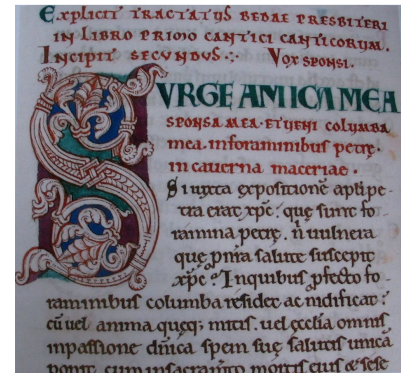 Explicit tractatus Bedae presbiteri
in libro primo cantici canticorum.
Incipit secundus :· Vox sponsi.
SVRGE AMICA MEA
SPONSA MEA· ET VENI columba
mea· in foraminibus petrę·
in caverna maceriae·
Si iuxta expositionē apli pe-
tra erat xpc̄· quę sunt fo-
ramina petrę· n̄ uulnera
quę p nr̄a salute suscepit
xpc̄? In quibus ꝓfecto fo-
raminibus columba residet ac nidificat·
cū uel anima quęq; mitis· uel ęcclia omnis
in passione dn̄ica spem suę salutis unicā
ponit· cum in sacramto mortis eius